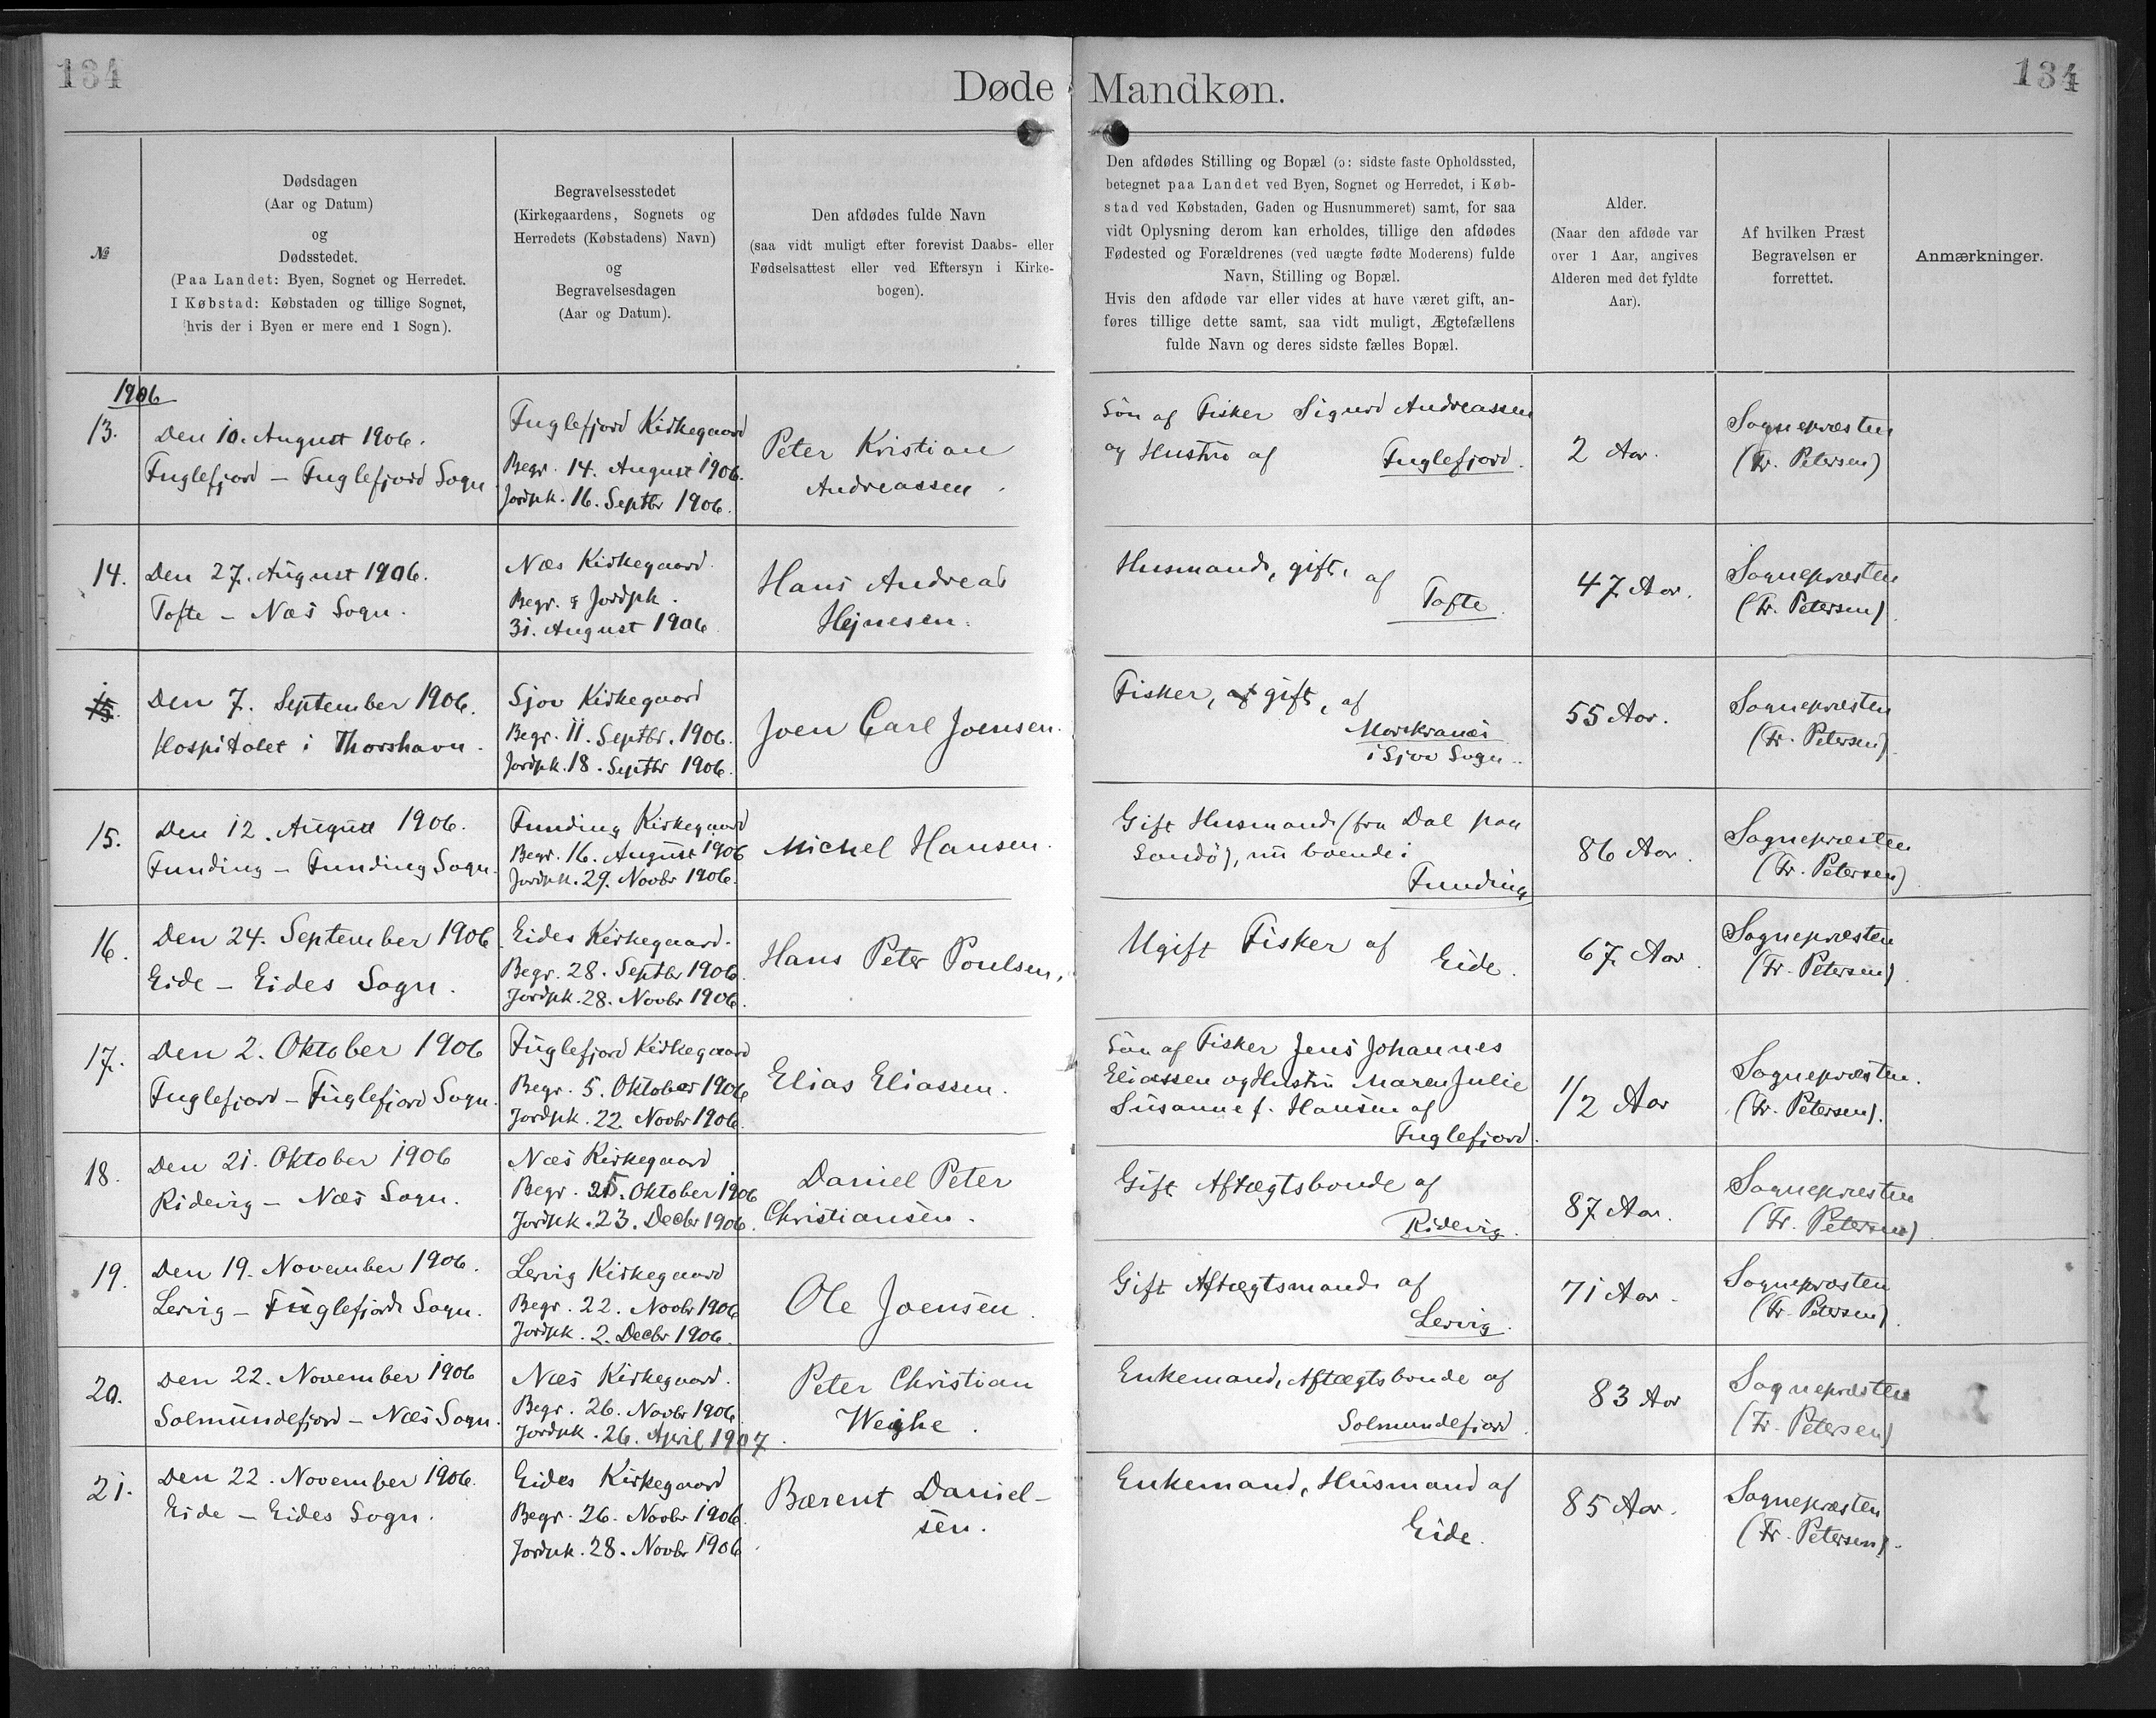 134
134
Døde Mandkøn.
№
Dødsdagen
(Aar og Datum)
og
Dødsstedet.
(Paa Landet: Byen, Sognet og Herredet.
I Købstad: Købstaden og tillige Sognet,
hvis der i Byen er mere end 1 Sogn).
Begravelsesstedet
(Kirkegaardens, Sognets og
Herredets (Købstadens) Navn)
og
Begravelsesdagen
(Aar og Datum).
Den afdødes fulde Navn
(saa vidt muligt efter forevist Daabs- eller
Fødselsattest eller ved Eftersyn i Kirke-
bogen).
Den afdødes Stilling og Bopæl (ɔ: sidste faste Opholdssted,
betegnet paa Landet ved Byen, Sognet og Herredet, i Køb-
stad ved Købstaden, Gaden og Husnummeret) samt, for saa
vidt Oplysning derom kan erholdes, tillige den afdødes
Fødested og Forældrenes (ved uægte fødte Moderens) fulde
Navn, Stilling og Bopæl.
Hvis den afdøde var eller vides at have været gift, an-
føres tillige dette samt, saa vidt muligt, Ægtefællens
fulde Navn og deres sidste fælles Bopæl.
Alder.
(Naar den afdøde var
over 1 Aar, angives
Alderen med det fyldte
Aar).
Af hvilken Præst
Begravelsen er
forrettet.
Anmærkninger.
1906
13.
Den 10. August 1906.
Fuglefjord – Fuglefjord Sogn
Fuglefjord Kirkegaard
Begr. 14. August 1906.
Jordpk. 16. Septbr 1906.
Peter Kristian
Andreassen.
Søn af Fisker Sigurd Andreassen
og Hustru af Fuglefjord.
2 Aar.
Sognepræsten
(Fr. Petersen)
14.
Den 27. August 1906.
Tofte – Næs Sogn.
Næs Kirkegaard.
Begr. & Jordpk.
31. August 1906
Hans Andreas
Hejnesen.
Husmand, gift, af
Tofte.
47 Aar.
Sognepræsten
(Fr. Petersen).
15.
Den 7. September 1906.
Hospitalet i Thorshavn.
Sjov Kirkegaard
Begr. 11. Septbr. 1906.
Jordpk. 18. Septbr 1906.
Joen Carl Joensen.
Fisker, af gift, af
Morskranæs
i Sjov Sogn.
55 Aar.
Sognepræsten
(Fr. Petersen).
15.
Den 12. August 1906.
Funding – Funding Sogn.
Funding Kirkegaard
Begr. 16. August 1906
Jordpk. 29. Novbr 1906.
Michel Hansen.
Gift Husmand (fra Dal paa
Sandö), nu boende i
Funding
86 Aar.
Sognepræsten
(Fr. Petersen)
16.
Den 24. September 1906
Eide – Eides Sogn.
Eides Kirkegaard.
Begr. 28. Septbr 1906.
Jordpk. 28. Novbr 1906.
Hans Peter Poulsen,
Ugift Fisker af
Eide.
67 Aar.
Sognepræsten
(Fr. Petersen).
17.
Den 2. Oktober 1906
Fuglefjord – Fuglefjord Sogn.
Fuglefjord Kirkegaard
Begr. 5. Oktober 1906
Jordpk. 22. Novbr 1906.
Elias Eliassen.
Søn af Fisker Jens Johannes
Eliassen og Hustru Maren Julie
Susanne f. Hansen af
Fuglefjord.
1/2 Aar
Sognepræsten.
(Fr. Petersen).
18.
Den 21. Oktober 1906
Ridevig – Næs Sogn.
Næs Kirkegaard
Begr. 25. Oktober 1906
Jordpk. 23. Decbr 1906.
Daniel Peter
Christiansen.
Gift Aftægtsbonde af
Ridevig.
87 Aar.
Sognepræsten
(Fr. Petersen)
19.
Den 19. November 1906.
Lervig – Fuglefjords Sogn.
Lervig Kirkegaard
Begr. 22. Novbr 1906
Jordpk. 2. Decbr 1906.
Ole Joensen.
Gift Aftægtsmand af
Lervig.
71 Aar.
Sognepræsten
(Fr. Petersen).
20.
Den 22. November 1906
Solmundefjord – Næs Sogn.
Næs Kirkegaard.
Begr. 26. Novbr 1906.
Jordpk. 26. April 1907.
Peter Christian
Weihe.
Enkemand, Aftægtsbonde af
Solmundefjord.
83 Aar
Sognepræsten
(Fr. Petersen)
21.
Den 22. November 1906.
Eide – Eides Sogn.
Eides Kirkegaard
Begr. 26. Novbr 1906.
Jordpk. 28. Novbr 1906.
Bærent Daniel-
sen.
Enkemand, Husmand af
Eide.
85 Aar.
Sognepræsten
(Fr. Petersen).